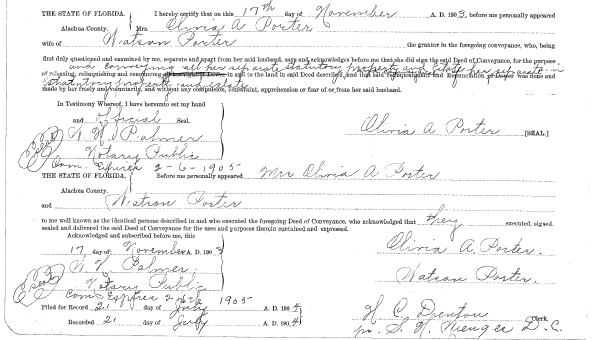 THE STATE OF FLORIDA, I hereby certify that on this 17th day of November A. D. 190 3, before me personally appeared
Alachua County. Mrs. Olivia A Porter
wife of Watson Porter the grantor in the foregoing conveyance, who, being
first duly questioned and examined by me, separate and apart from her said husband, says and acknowledges before me that she did sign the said Deed of Conveyance, for the purpose
and conveying all her separate statutory property and estate her separate
of releasing, relinquishing and renouncing all her right of Dower in and to the land in said Deed described, and that said relinquishment and Renunciation of Dower was done and
statutory property and estate
made by her freely and voluntarily, and without any compulsion, constraint, apprehension or fear of or from her said husband.
In Testimony Whereof, I have hereunto set my hand
and official Seal.
N. H. Palmer Olivia A Porter [SEAL]
Seal Notary Public
Com. Expires 2-6-1905
THE STATE OF FLORIDA, Before me personally appeared Mrs Olivia A Porter
Alachua County.
and Watson Porter
to me well known as the identical persons described in and who executed the foregoing Deed of Conveyance, who acknowledged that they executed, signed,
sealed and delivered the said Deed of Conveyance for the uses and purposes therein contained and expressed.
Acknowledged and subscribed before me, this
17 day of November A. D. 190 3 Olivia A. Porter.
N. H. Palmer. Watson Porter.
Seal Notary Public
Com Expires 1905
Filed for Record 21 day of July A. D. 190 4 H. C. Denton Clerk.
Recorded 21 day of July A. D. 190 4 pr. S. H. Wienges D. C.